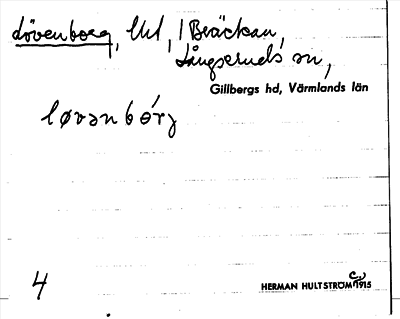 Lövenborg, Uhl, i Bräckan,
Långseruds sn,
Gillbergs hd, Värmlands län
løvənbórj
4
HERMAN HULTSTRÖM c. 1915